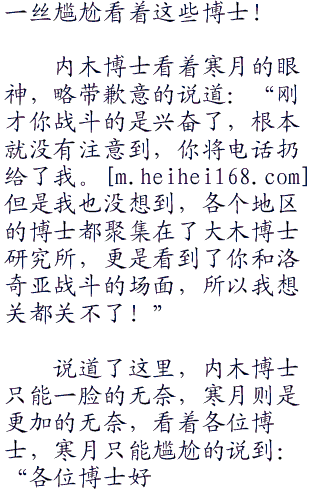 一丝尴尬看着这些博士！
内木博士看着寒月的眼
神，略带歉意的说道：“刚
才你战斗的是兴奋了，根本
就没有注意到，你将电话扔
给了我。[m.heihei168.com]
但是我也没想到，各个地区
的博士都聚集在了大木博士
研究所，更是看到了你和洛
奇亚战斗的场面，所以我想
关都关不了！”
说道了这里，内木博士
只能一脸的无奈，寒月则是
更加的无奈，看着各位博
士，寒月只能尴尬的说到：
“各位博士好